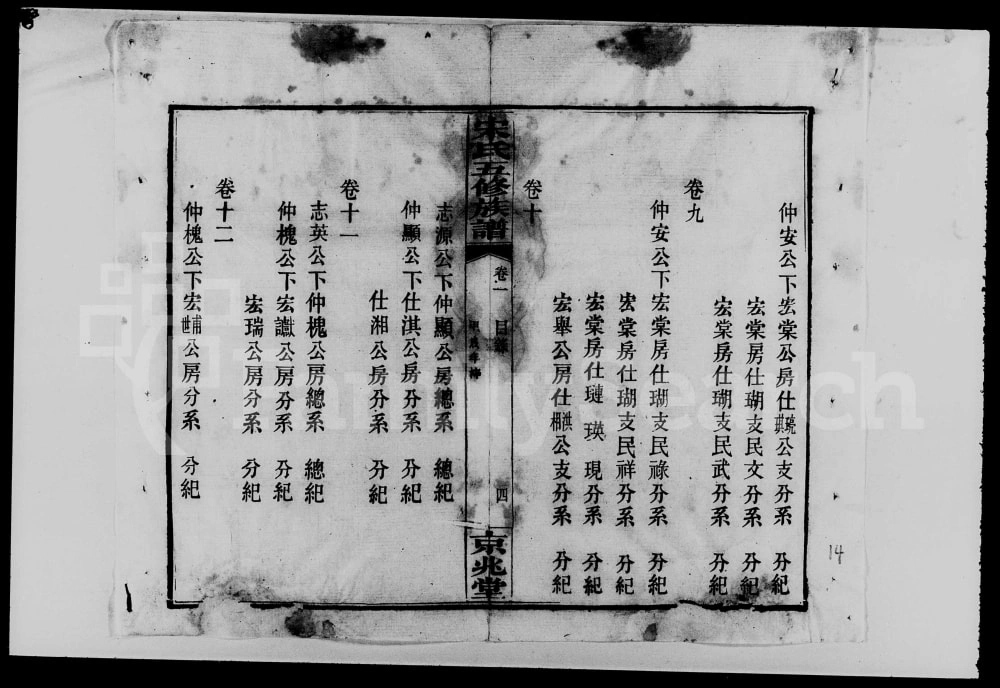 仲安公下宏棠公房仕琉琪公支分系 分紀
宏棠房仕瑚支民文分系 分紀
宏棠房仕瑚支民武分系 分紀
卷九
仲安公下宏棠房仕瑚支民祿分系 分紀
宏棠房仕瑚支民祥分系 分紀
宏棠房仕璉 瑛 現分系 分紀
宏舉公房仕洪相公支分系 分紀
卷十
宋氏五修族譜 卷一 目錄 四 京兆堂
志源公下仲顯公房總系 總紀
仲顯公下仕淇公房分系 分紀
仕湘公房分系 分紀
卷十一
志英公下仲槐公房總系 總紀
仲槐公下宏讞公房分系 分紀
宏瑞公房分系 分紀
卷十二
仲槐公下宏甫世公房分系 分紀
14
FamilySearch